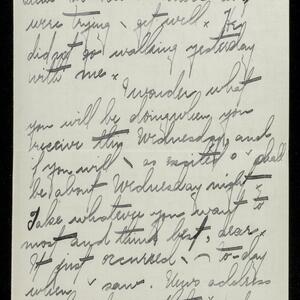 were trying to get well x They
did not go walking yesterday
with me x
I wonder what
you will be doing when you
receive this Wednesday, and
if you will be as excited as I shall
be about Wednesday night x
Take whatever you want to
most and think best, dear x
It just occurred to me to-day
when I saw your address